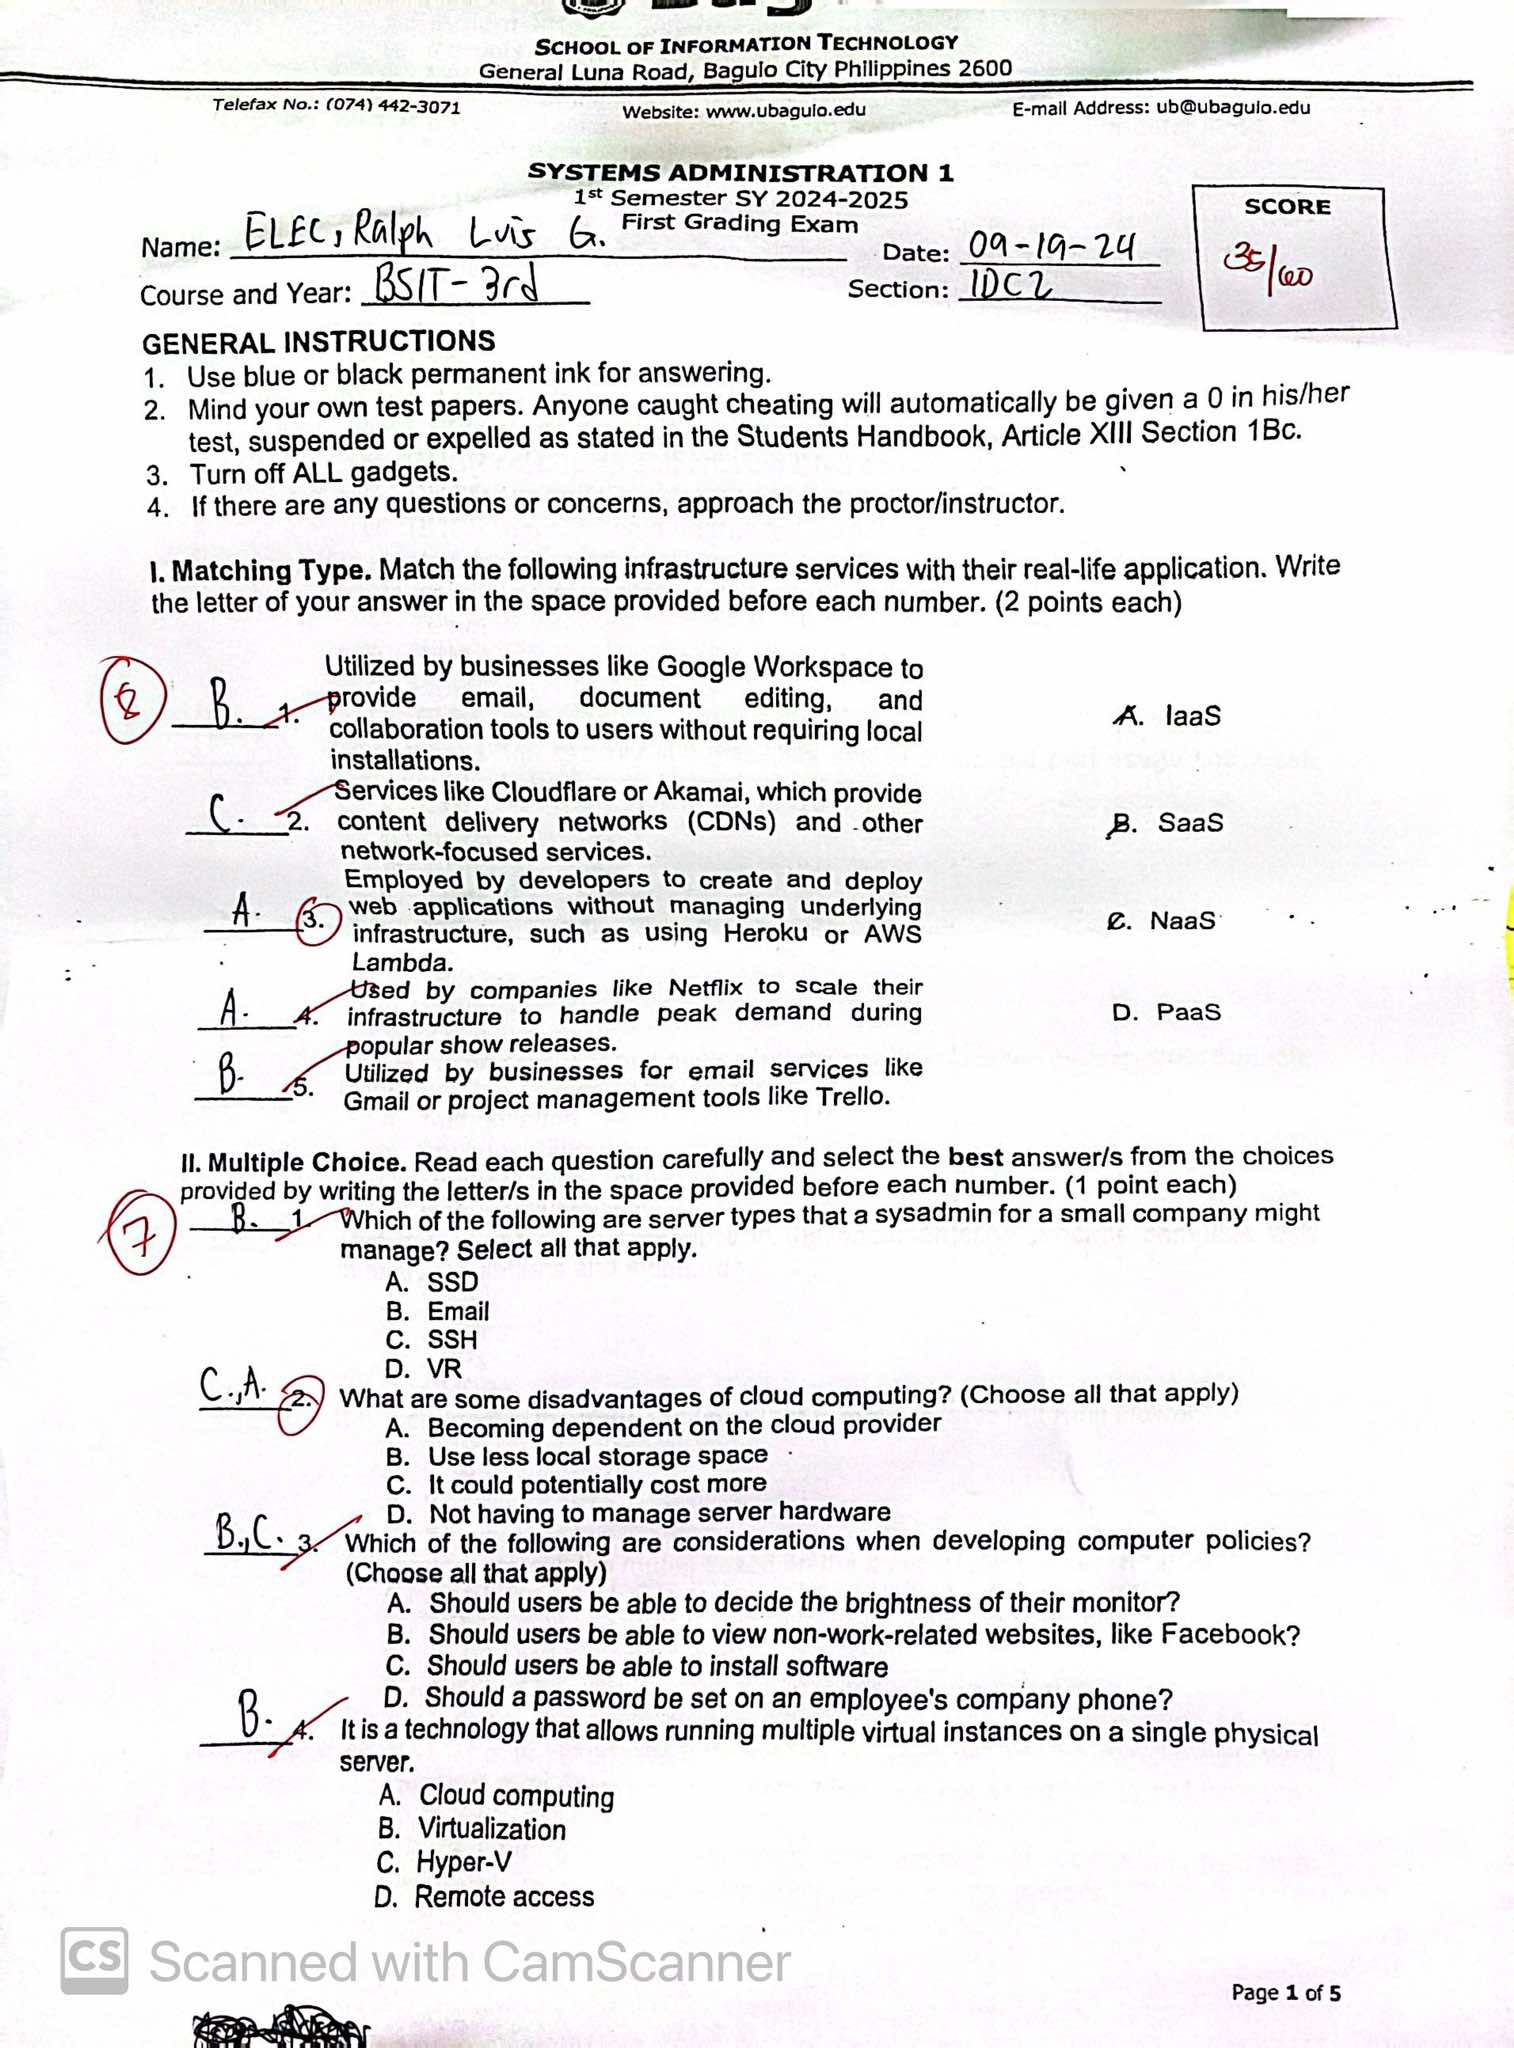 SCHOOL OF INFORMATION TECHNOLOGY
General Luna Road, Baguio City Philippines 2600
Telefax No.: (074) 442-3071 Website: www.ubaguio.edu E-mail Address: ub@ubaguio.edu
SYSTEMS ADMINISTRATION 1
1st Semester SY 2024-2025
First Grading Exam
SCORE
35/60
Name: ELEC, Ralph Luis G. Date: 09-19-24
Course and Year: BSIT-3rd Section: IDC2
GENERAL INSTRUCTIONS
1. Use blue or black permanent ink for answering.
2. Mind your own test papers. Anyone caught cheating will automatically be given a 0 in his/her
test, suspended or expelled as stated in the Students Handbook, Article XIII Section 1Bc.
3. Turn off ALL gadgets.
4. If there are any questions or concerns, approach the proctor/instructor.
I. Matching Type. Match the following infrastructure services with their real-life application. Write
the letter of your answer in the space provided before each number. (2 points each)
8
B. 1. Utilized by businesses like Google Workspace to
provide email, document editing, and
collaboration tools to users without requiring local
installations.
A. IaaS
C. 2. Services like Cloudflare or Akamai, which provide
content delivery networks (CDNs) and other
network-focused services.
B. SaaS
A. 3. Employed by developers to create and deploy
web applications without managing underlying
infrastructure, such as using Heroku or AWS
Lambda.
C. NaaS
A. 4. Used by companies like Netflix to scale their
infrastructure to handle peak demand during
popular show releases.
D. PaaS
B. 5. Utilized by businesses for email services like
Gmail or project management tools like Trello.
II. Multiple Choice. Read each question carefully and select the best answer/s from the choices
provided by writing the letter/s in the space provided before each number. (1 point each)
7
B. 1. Which of the following are server types that a sysadmin for a small company might
manage? Select all that apply.
A. SSD
B. Email
C. SSH
D. VR
C.,A. 2. What are some disadvantages of cloud computing? (Choose all that apply)
A. Becoming dependent on the cloud provider
B. Use less local storage space
C. It could potentially cost more
D. Not having to manage server hardware
B.,C. 3. Which of the following are considerations when developing computer policies?
(Choose all that apply)
A. Should users be able to decide the brightness of their monitor?
B. Should users be able to view non-work-related websites, like Facebook?
C. Should users be able to install software
D. Should a password be set on an employee's company phone?
B. 4. It is a technology that allows running multiple virtual instances on a single physical
server.
A. Cloud computing
B. Virtualization
C. Hyper-V
D. Remote access
CS Scanned with CamScanner
Page 1 of 5